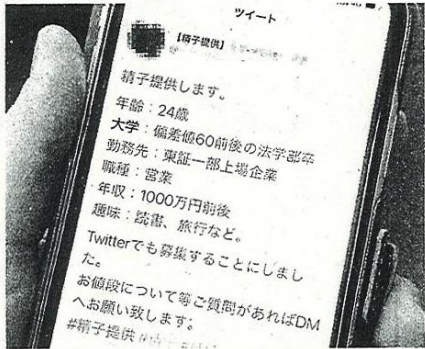 ツイート
【精子提供】
精子提供します。
年齢：24歳
大学：偏差値60前後の法学部卒
勤務先：東証一部上場企業
職種：営業
年収：1000万円前後
趣味：読書、旅行など。
Twitterでも募集することにしまし
た。
お値段について等ご質問があればDM
へお願い致します。
#精子提供